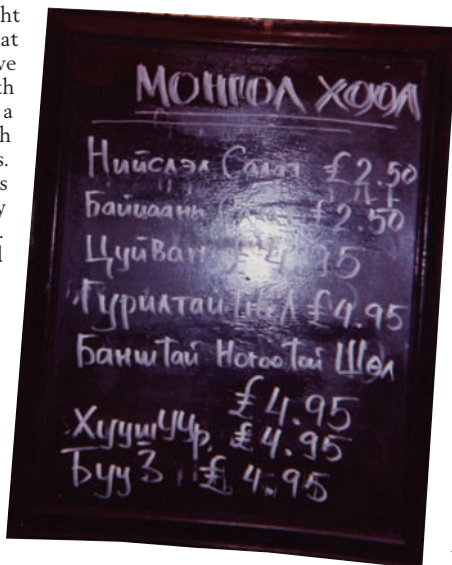 ht
at
ve
th
a
h
s.
s
y
.
l
МОНГОЛ ХООЛ
Нийслэл Салат £2.50
Байцаань £2.50
Цуйван £4.95
Гурилтай Шөл £4.95
Банштай Ногоотой Шөл
£4.95
Хуушуур £4.95
Бууз £4.95